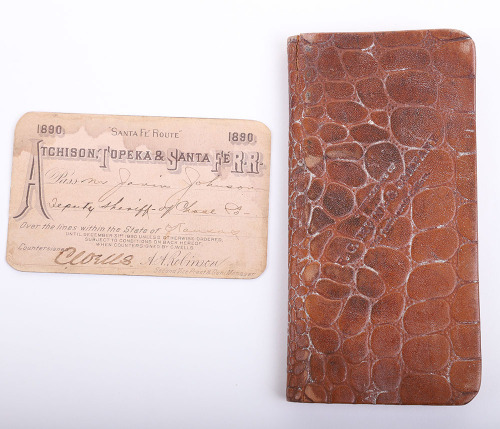 1890 "SANTA FE ROUTE" 1890
ATCHISON, TOPEKA & SANTA FE R.R.
Pass Mr Johnson
Deputy Sheriff of Chase Co
Over the lines within the State of Kansas
UNTIL DECEMBER 31ST 1890 UNLESS OTHERWISE ORDERED,
SUBJECT TO CONDITIONS ON BACK HEREOF,
WHEN COUNTERSIGNED BY C. WELLS
Countersigned
A.A. Robinson
Second Vice Prest & Gen. Manager